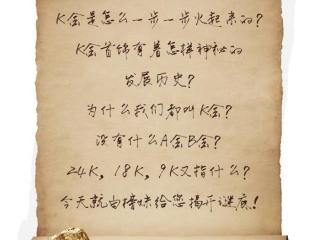 K金是怎么一步一步火起来的?
K金首饰有着怎样神秘的
发展历史?
为什么我们都叫K金?
没有什么A金B金?
24K,18K,9K又指什么?
今天就由接妹给您揭开谜底!